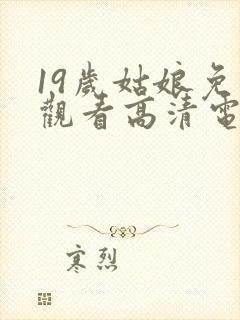 19歲姑娘免
觀看高清電
寒烈